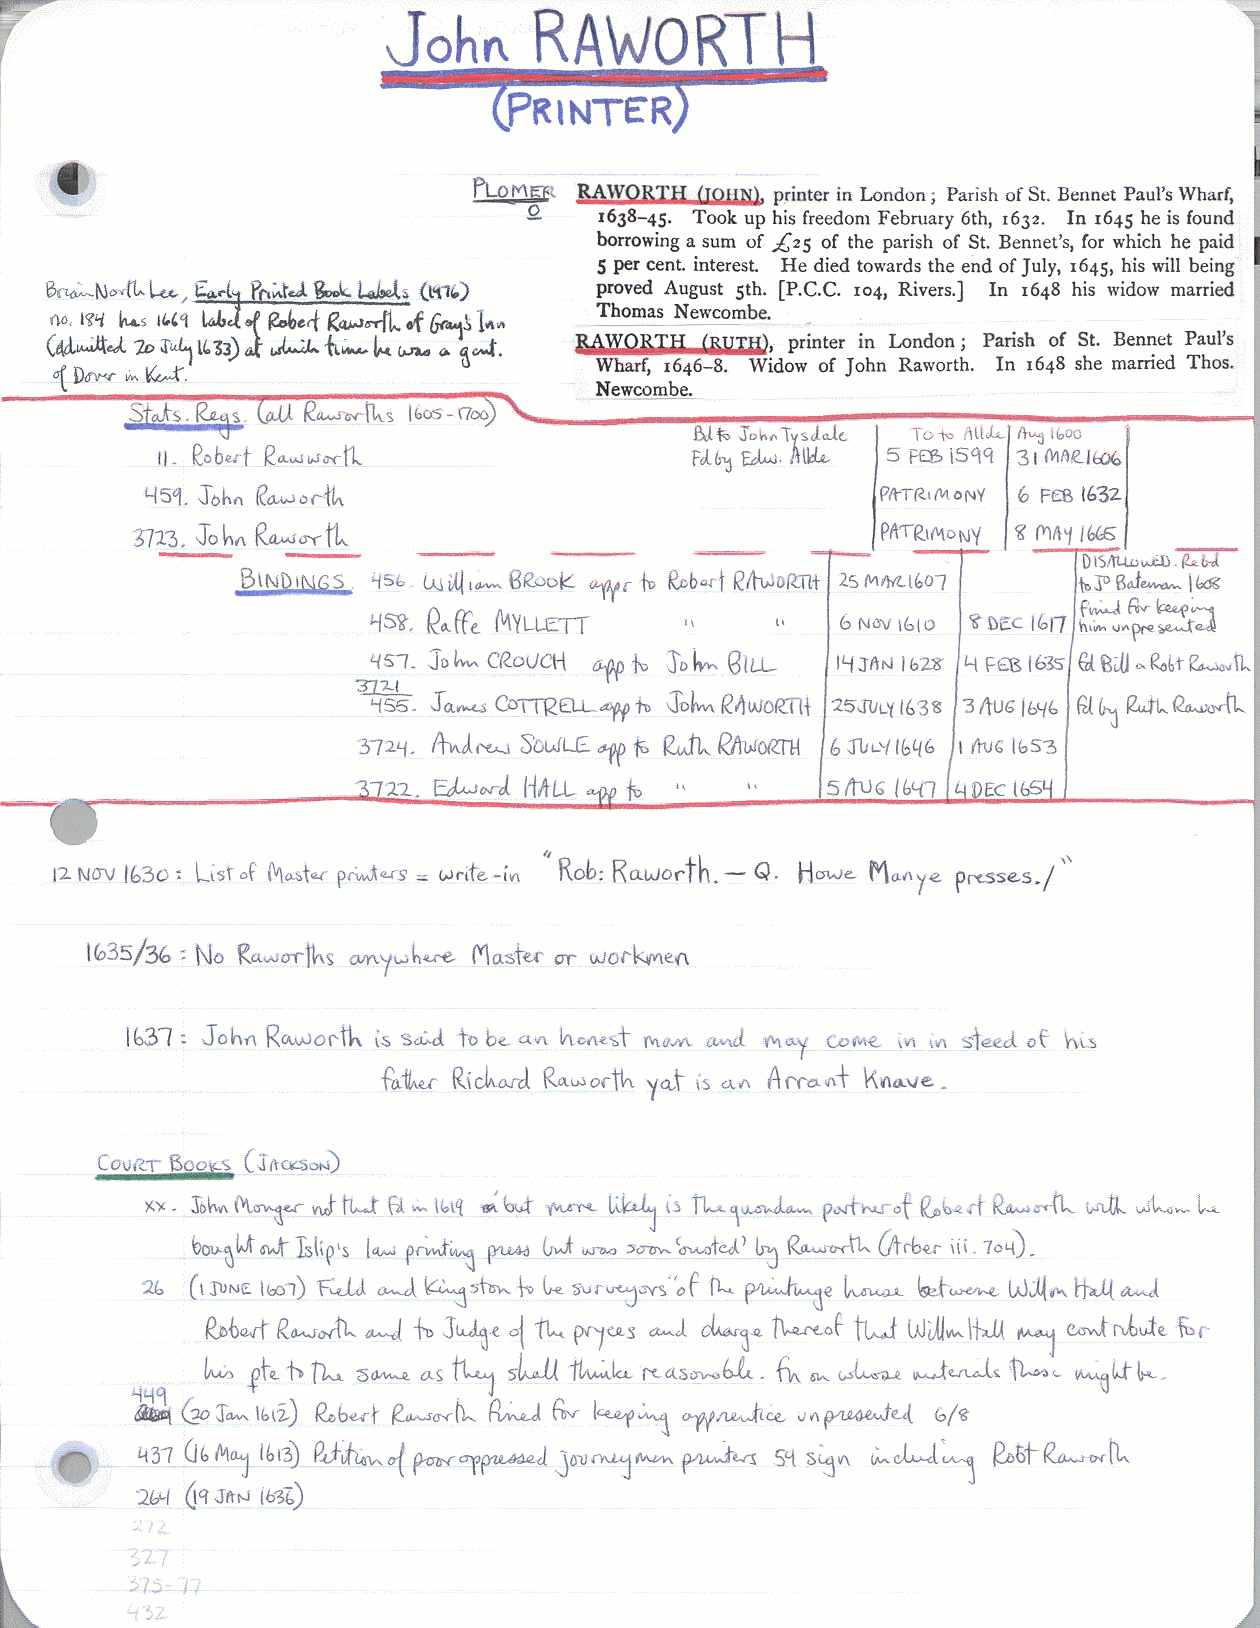 John RAWORTH
(PRINTER)
PLOMER
O
RAWORTH (JOHN), printer in London; Parish of St. Bennet Paul's Wharf,
1638–45. Took up his freedom February 6th, 1632. In 1645 he is found
borrowing a sum of £25 of the parish of St. Bennet's, for which he paid
5 per cent. interest. He died towards the end of July, 1645, his will being
proved August 5th. [P.C.C. 104, Rivers.] In 1648 his widow married
Thomas Newcombe.
RAWORTH (RUTH), printer in London; Parish of St. Bennet Paul's
Wharf, 1646–8. Widow of John Raworth. In 1648 she married Thos.
Newcombe.
Brian North Lee, Early Printed Book Labels (1976)
no. 184 has 1669 label of Robert Raworth of Gray's Inn
(admitted 20 July 1633) at which time he was a gent.
of Dover in Kent.
Stats. Regs. (all Raworths 1605-1700)
Bd to John Tysdale To to Allde Aug 1600
11. Robert Rawworth Fd by Edw. Allde 5 FEB 1599 31 MAR 1606
459. John Raworth PATRIMONY 6 FEB 1632
3723. John Raworth PATRIMONY 8 MAY 1665
BINDINGS. 456. William BROOK appr to Robert RAWORTH 25 MAR 1607 DISALLOWED. Rebd to Jº Bateman 1608
458. Raffe MYLLETT " " 6 NOV 1610 8 DEC 1617 fined for keeping him unpresented
457. John CROUCH app to John BILL 14 JAN 1628 4 FEB 1635 fd Bill & Robt Raworth
3721
455. James COTTRELL app to John RAWORTH 25 JULY 1638 3 AUG 1646 fd by Ruth Raworth
3724. Andrew SOWLE app to Ruth RAWORTH 6 JULY 1646 1 AUG 1653
3722. Edward HALL app to " " 5 AUG 1647 4 DEC 1654
12 NOV 1630: List of Master printers = write-in "Rob: Raworth. — Q. Howe Manye presses./"
1635/36: No Raworths anywhere Master or workmen
1637: John Raworth is said to be an honest man and may come in in steed of his
father Richard Raworth yat is an Arrant Knave.
COURT BOOKS (JACKSON)
xx. John Monger not that fd in 1619 but more likely is the quondam partner of Robert Raworth with whom he
bought out Islip's law printing press but was soon 'ousted' by Raworth (Arber iii. 704).
26 (1 JUNE 1607) Field and Kingston to be surveyors" of the printinge house betwene Willm Hall and
Robert Raworth and to Judge of the pryces and charge thereof that Willm Hall may contribute for
his pte to the same as they shall thinke reasonable. fn on whose materials these might be.
449
(20 Jan 1612) Robert Raworth fined for keeping apprentice unpresented 6/8
437 (16 May 1613) Petition of poor oppressed journeymen printers 54 sign including Robt Raworth
264 (19 JAN 1636)
272
327
375-77
432